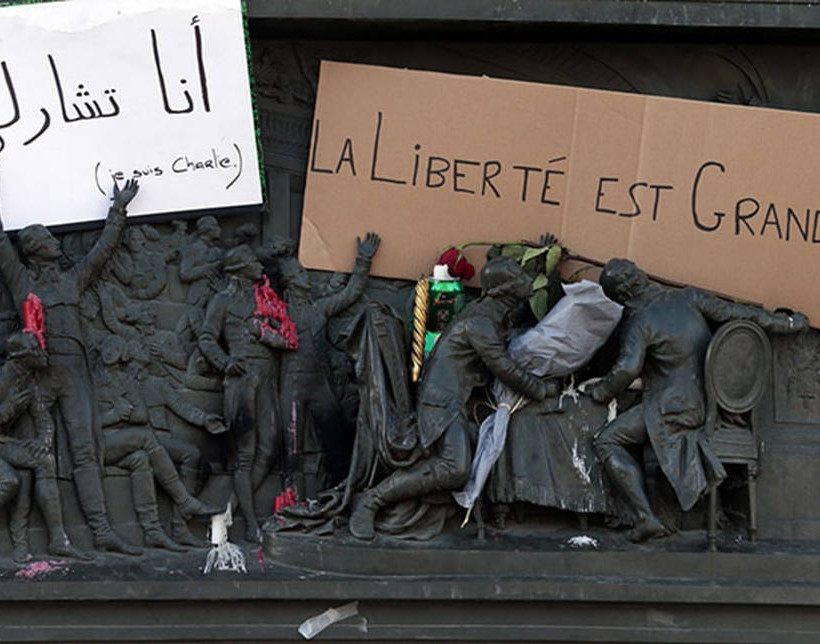 أنا تشارلي
(je suis Charlie.)
LA LIBERTÉ EST GRAND